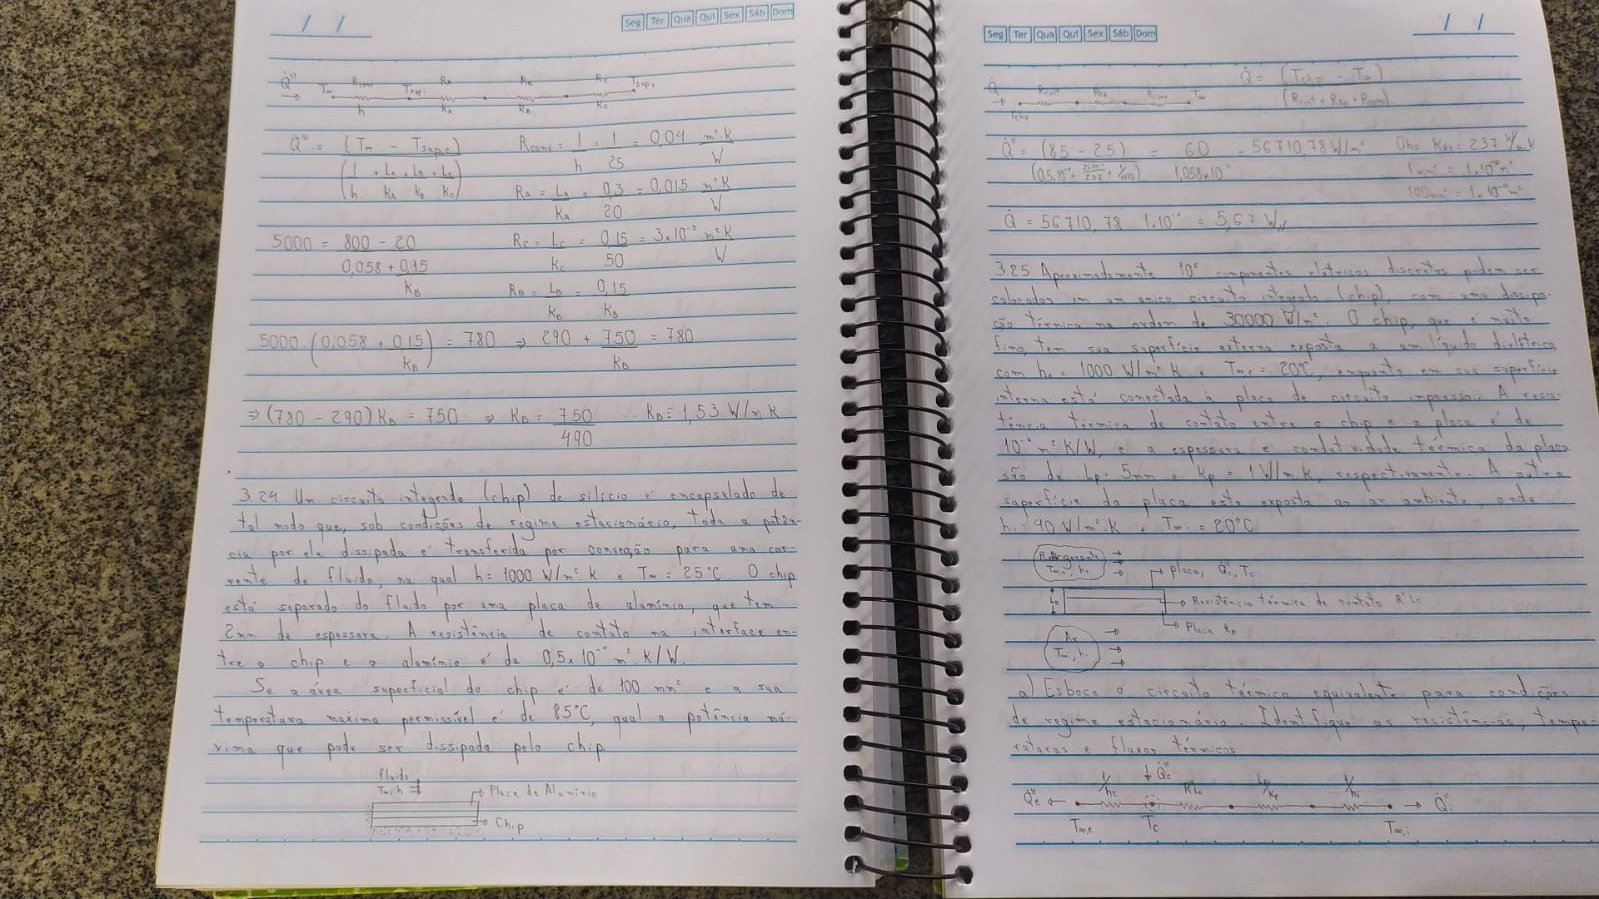 / /
Seg Ter Qua Qui Sex Sáb Dom
Q̇" T∞ Rconv Tsup,i RA RB RC Tsup,e
h kA kB kC
Q̇" = (T∞ - Tsup,e) Rconv = 1 = 1 = 0,04 m².K
(1 + LA + LB + LC) h 25 W
h kA kB kC RA = LA = 0,3 = 0,015 m².K
kA 20 W
5000 = 800 - 20 RC = LC = 0,15 = 3x10⁻³ m².K
0,058 + 0,15 kC 50 W
kB RB = LB = 0,15
kB kB
5000 . (0,058 + 0,15) = 780 ⇒ 290 + 750 = 780
kB kB
⇒ (780 - 290) kB = 750 ⇒ kB = 750 ∴ kB = 1,53 W/m.K
490
3.24 Um circuito integrado (chip) de silício é encapsulado de
tal modo que, sob condições de regime estacionário, toda a potên-
cia por ele dissipada é transferida por convecção para uma cor-
rente de fluido, na qual h = 1000 W/m².K e T∞ = 25°C. O chip
está separado do fluido por uma placa de alumínio, que tem
2mm de espessura. A resistência de contato na interface en-
tre o chip e o alumínio é de 0,5x10⁻⁴ m².K/W.
Se a área superficial do chip é de 100 mm² e a sua
temperatura maxima permissível é de 85°C, qual a potência má-
xima que pode ser dissipada pelo chip.
fluido
T∞, h Placa de Alumínio
Chip
/ /
Seg Ter Qua Qui Sex Sáb Dom
Q̇ Tchip T∞ Q̇ = (Tchip - T∞)
Q̇" = (85 - 25) = 60 = 56710,78 W/m² Obs: kAl = 237 W/m.K
1,058.10⁻³ 1mm² = 1.10⁻⁶m²
100mm² = 1.10⁻⁴m²
Q̇ = 56710,78 . 1.10⁻⁴ = 5,67 W
3.25 Aproximadamente 10⁶ componentes elétricos discretos podem ser
colocados em um único circuito integrado (chip), com uma dissipa-
ção térmica na ordem de 30000 W/m². O chip, que é muito
fino, tem sua superfície externa exposta a um líquido dielétrico,
com he = 1000 W/m².K e T∞,e = 20°C, enquanto em sua superfície
interna está conectada à placa de circuito impresso. A resis-
tência térmica de contato entre o chip e a placa é de
10⁻⁴ m².K/W, e a espessura e condutividade térmica da placa
são de Lp = 5mm e kp = 1 W/m.K, respectivamente. A outra
superfície da placa está exposta ao ar ambiente, onde
hi = 40 W/m².K e T∞,i = 20°C
Refrigerante
T∞,e, he Placa, Q̇"c, Tc
Resistência térmica de contato
Placa kp
Ar
T∞,i, hi
a) Esboce o circuito térmico equivalente para condições
de regime estacionário. Identifique as resistências, tempe-
raturas e fluxos térmicos
Q̇"e 1/he Q̇"c Lp/kp 1/hi Q̇"i
T∞,e Tc T∞,i